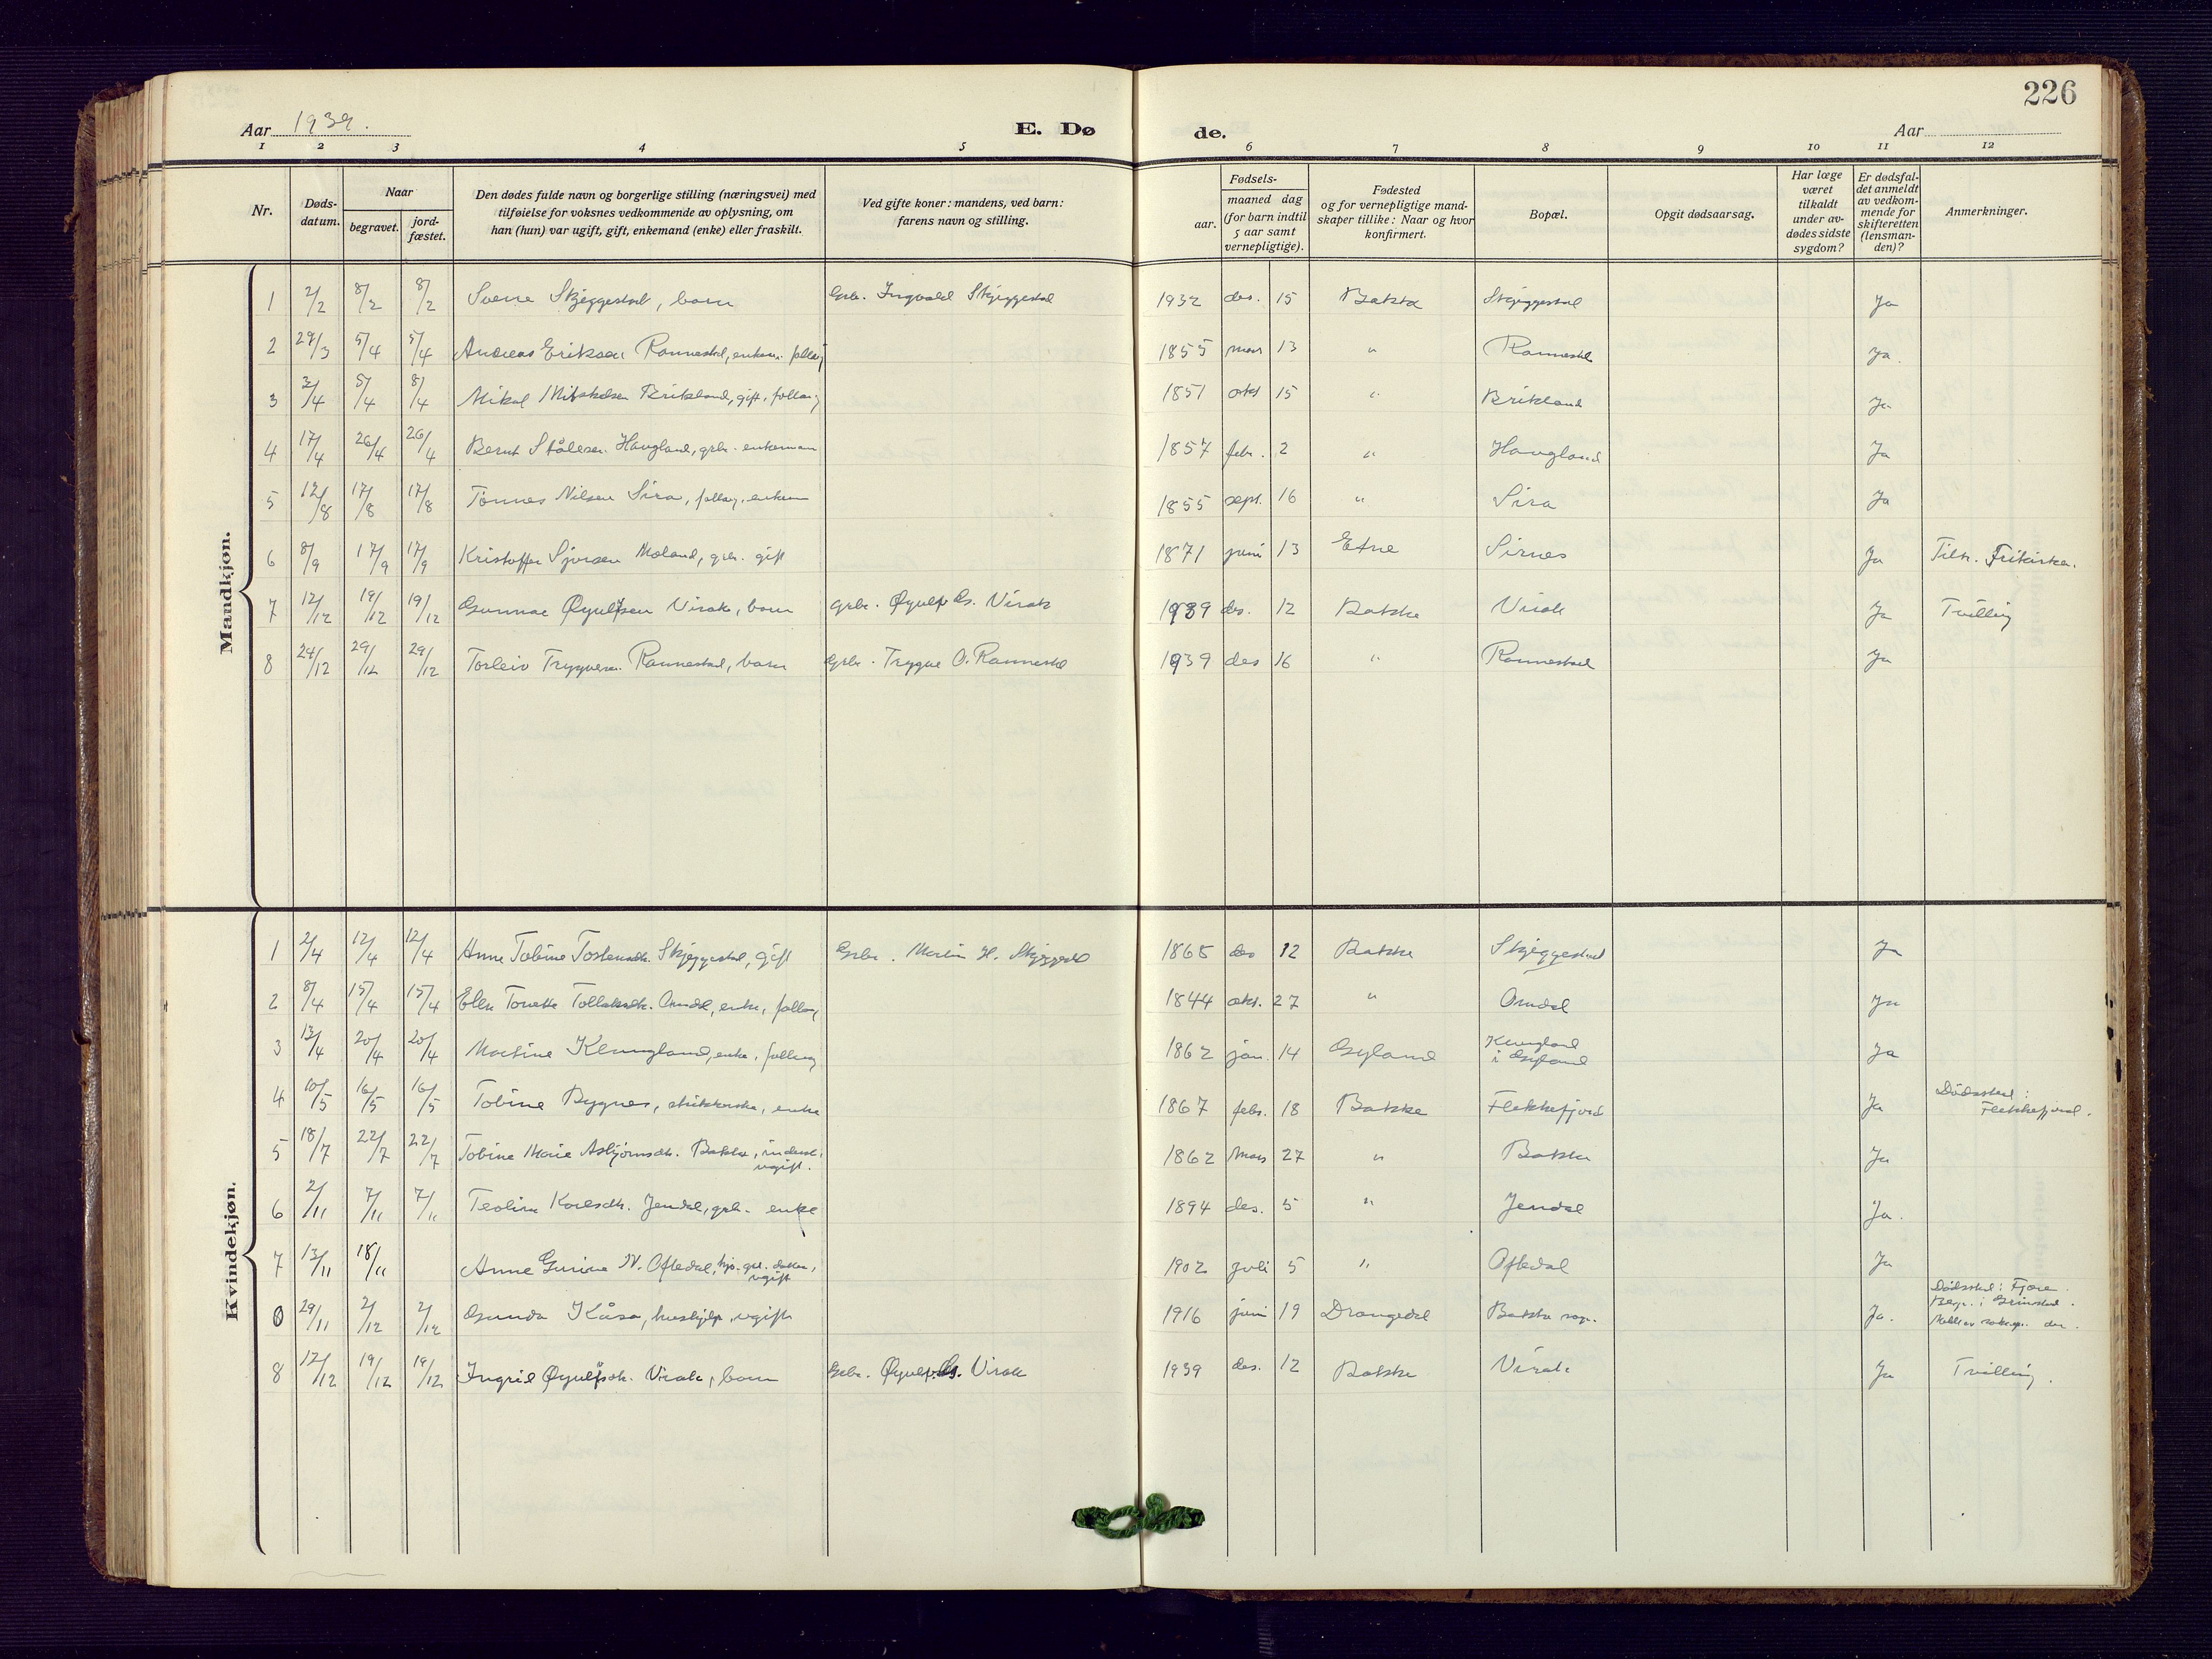 226
Aar 1939.
E. Døde.
Aar
1 2 3 4 5 6 7 8 9 10 11 12
Nr.
Døds-
datum.
Naar
begravet.
jord-
fæstet.
Den dødes fulde navn og borgerlige stilling (næringsvei) med
tilføielse for voksnes vedkommende av oplysning, om
han (hun) var ugift, gift, enkemand (enke) eller fraskilt.
Ved gifte koner: mandens, ved barn:
farens navn og stilling.
Fødsels-
aar.
maaned dag
(for barn indtil
5 aar samt
vernepligtige).
Fødested
og for vernepligtige mand-
skaper tillike: Naar og hvor
konfirmert.
Bopæl.
Opgit dødsaarsag.
Har læge
været
tilkaldt
under av-
dødes sidste
sygdom?
Er dødsfal-
det anmeldt
av vedkom-
mende for
skifteretten
(lensman-
den)?
Anmerkninger.
Mandkjøn.
1 2/2 8/2 8/2 Sverre Skjeggestad, barn Grb. Ingvald Skjeggestad 1932 des. 15 Bakke Skjeggestad Ja
2 29/3 5/4 5/4 Andreas Eriksen Rannestad, enkem. follaug 1855 mars 13 " Rannestad Ja.
3 3/4 5/4 8/4 Mikal Mikkelsen Birkeland, gift, follaug 1851 okt 15 " Birkeland Ja
4 17/4 26/4 26/4 Bernt Stålesen Haugland, grbr. enkemann 1857 febr. 2 " Haugland Ja
5 12/8 17/8 17/8 Tønnes Nilsen Sira, follaug, enkem 1855 sept. 16 " Sira Ja
6 8/9 17/9 17/9 Kristoffer Sjursen Moland, grbr. gift 1871 juni 13 Etne Sirnes Ja Tilh. Frikirken.
7 12/12 19/12 19/12 Gunnar Øyulfsen Virak, barn grbr. Øyulf As. Virak 1939 des. 12 Bakke Virak Ja Tvilling
8 24/12 29/12 29/12 Torleiv Tryggvesen Rannestad, barn Grbr. Trygve O. Rannestad 1939 des 16 " Rannestad Ja
Kvindekjøn.
1 2/4 12/4 12/4 Anne Tobine Tostensdtr. Skjeggestad, gift Grbr. Martin H. Skjeggestad 1865 des 12 Bakke Skjeggestad Ja
2 8/4 15/4 15/4 Elen Tonette Tollaksdtr. Omdal, enke, follaug 1844 okt. 27 " Omdal Ja
3 13/4 20/4 20/4 Martine Klungland, enke, follaug 1862 jan. 14 Gyland Klungland
i Gyland Ja
4 10/5 16/5 16/5 Tobine Bygnes, strikkerske, enke 1867 febr. 18 Bakke Flekkefjord Ja Dødssted:
Flekkefjord.
5 18/7 22/7 22/7 Tobine Marie Asbjørnsdtr. Bakke, inderst,
ugift. 1862 Mars 27 " Bakke Ja
6 2/11 7/11 7/11 Teoline Karlsdtr. Jendal, grb. enke 1894 des. 5 " Jendal Ja.
7 13/11 18/11 Anne Gurine N. Oftedal, hjv. grd. datter,
ugift 1902 juli 5 " Oftedal Ja
0 29/11 2/12 2/12 Gunda Kåsa, hushjelp, ugift 1916 juni 19 Drangedal Bakke sogn. Ja. Dødssted: Fjære.
Begr. i Grimstad.
8 12/12 19/12 19/12 Ingrid Øyulfsdtr. Virak, barn Grbr. Øyulf As. Virak 1939 des. 12 Bakke Virak Ja Tvilling.